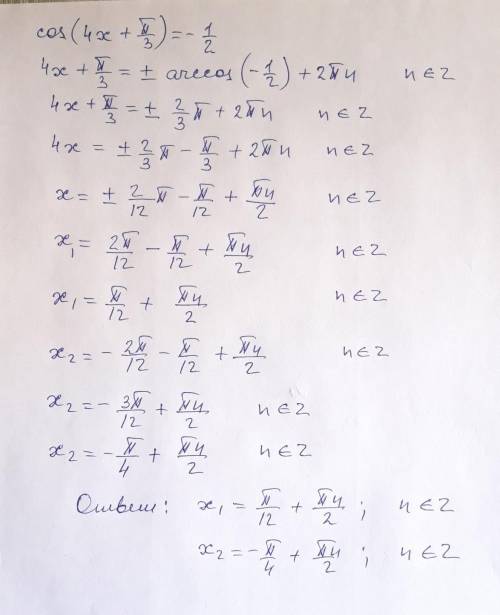 cos(4x + π/3) = - 1/2
4x + π/3 = ± arccos(-1/2) + 2πn n ∈ Z
4x + π/3 = ± 2/3 π + 2πn n ∈ Z
4x = ± 2/3 π - π/3 + 2πn n ∈ Z
x = ± 2/12 π - π/12 + πn/2 n ∈ Z
x₁ = 2π/12 - π/12 + πn/2 n ∈ Z
x₁ = π/12 + πn/2 n ∈ Z
x₂ = - 2π/12 - π/12 + πn/2 n ∈ Z
x₂ = - 3π/12 + πn/2 n ∈ Z
x₂ = - π/4 + πn/2 n ∈ Z
Ответ: x₁ = π/12 + πn/2 ; n ∈ Z
x₂ = - π/4 + πn/2 ; n ∈ Z